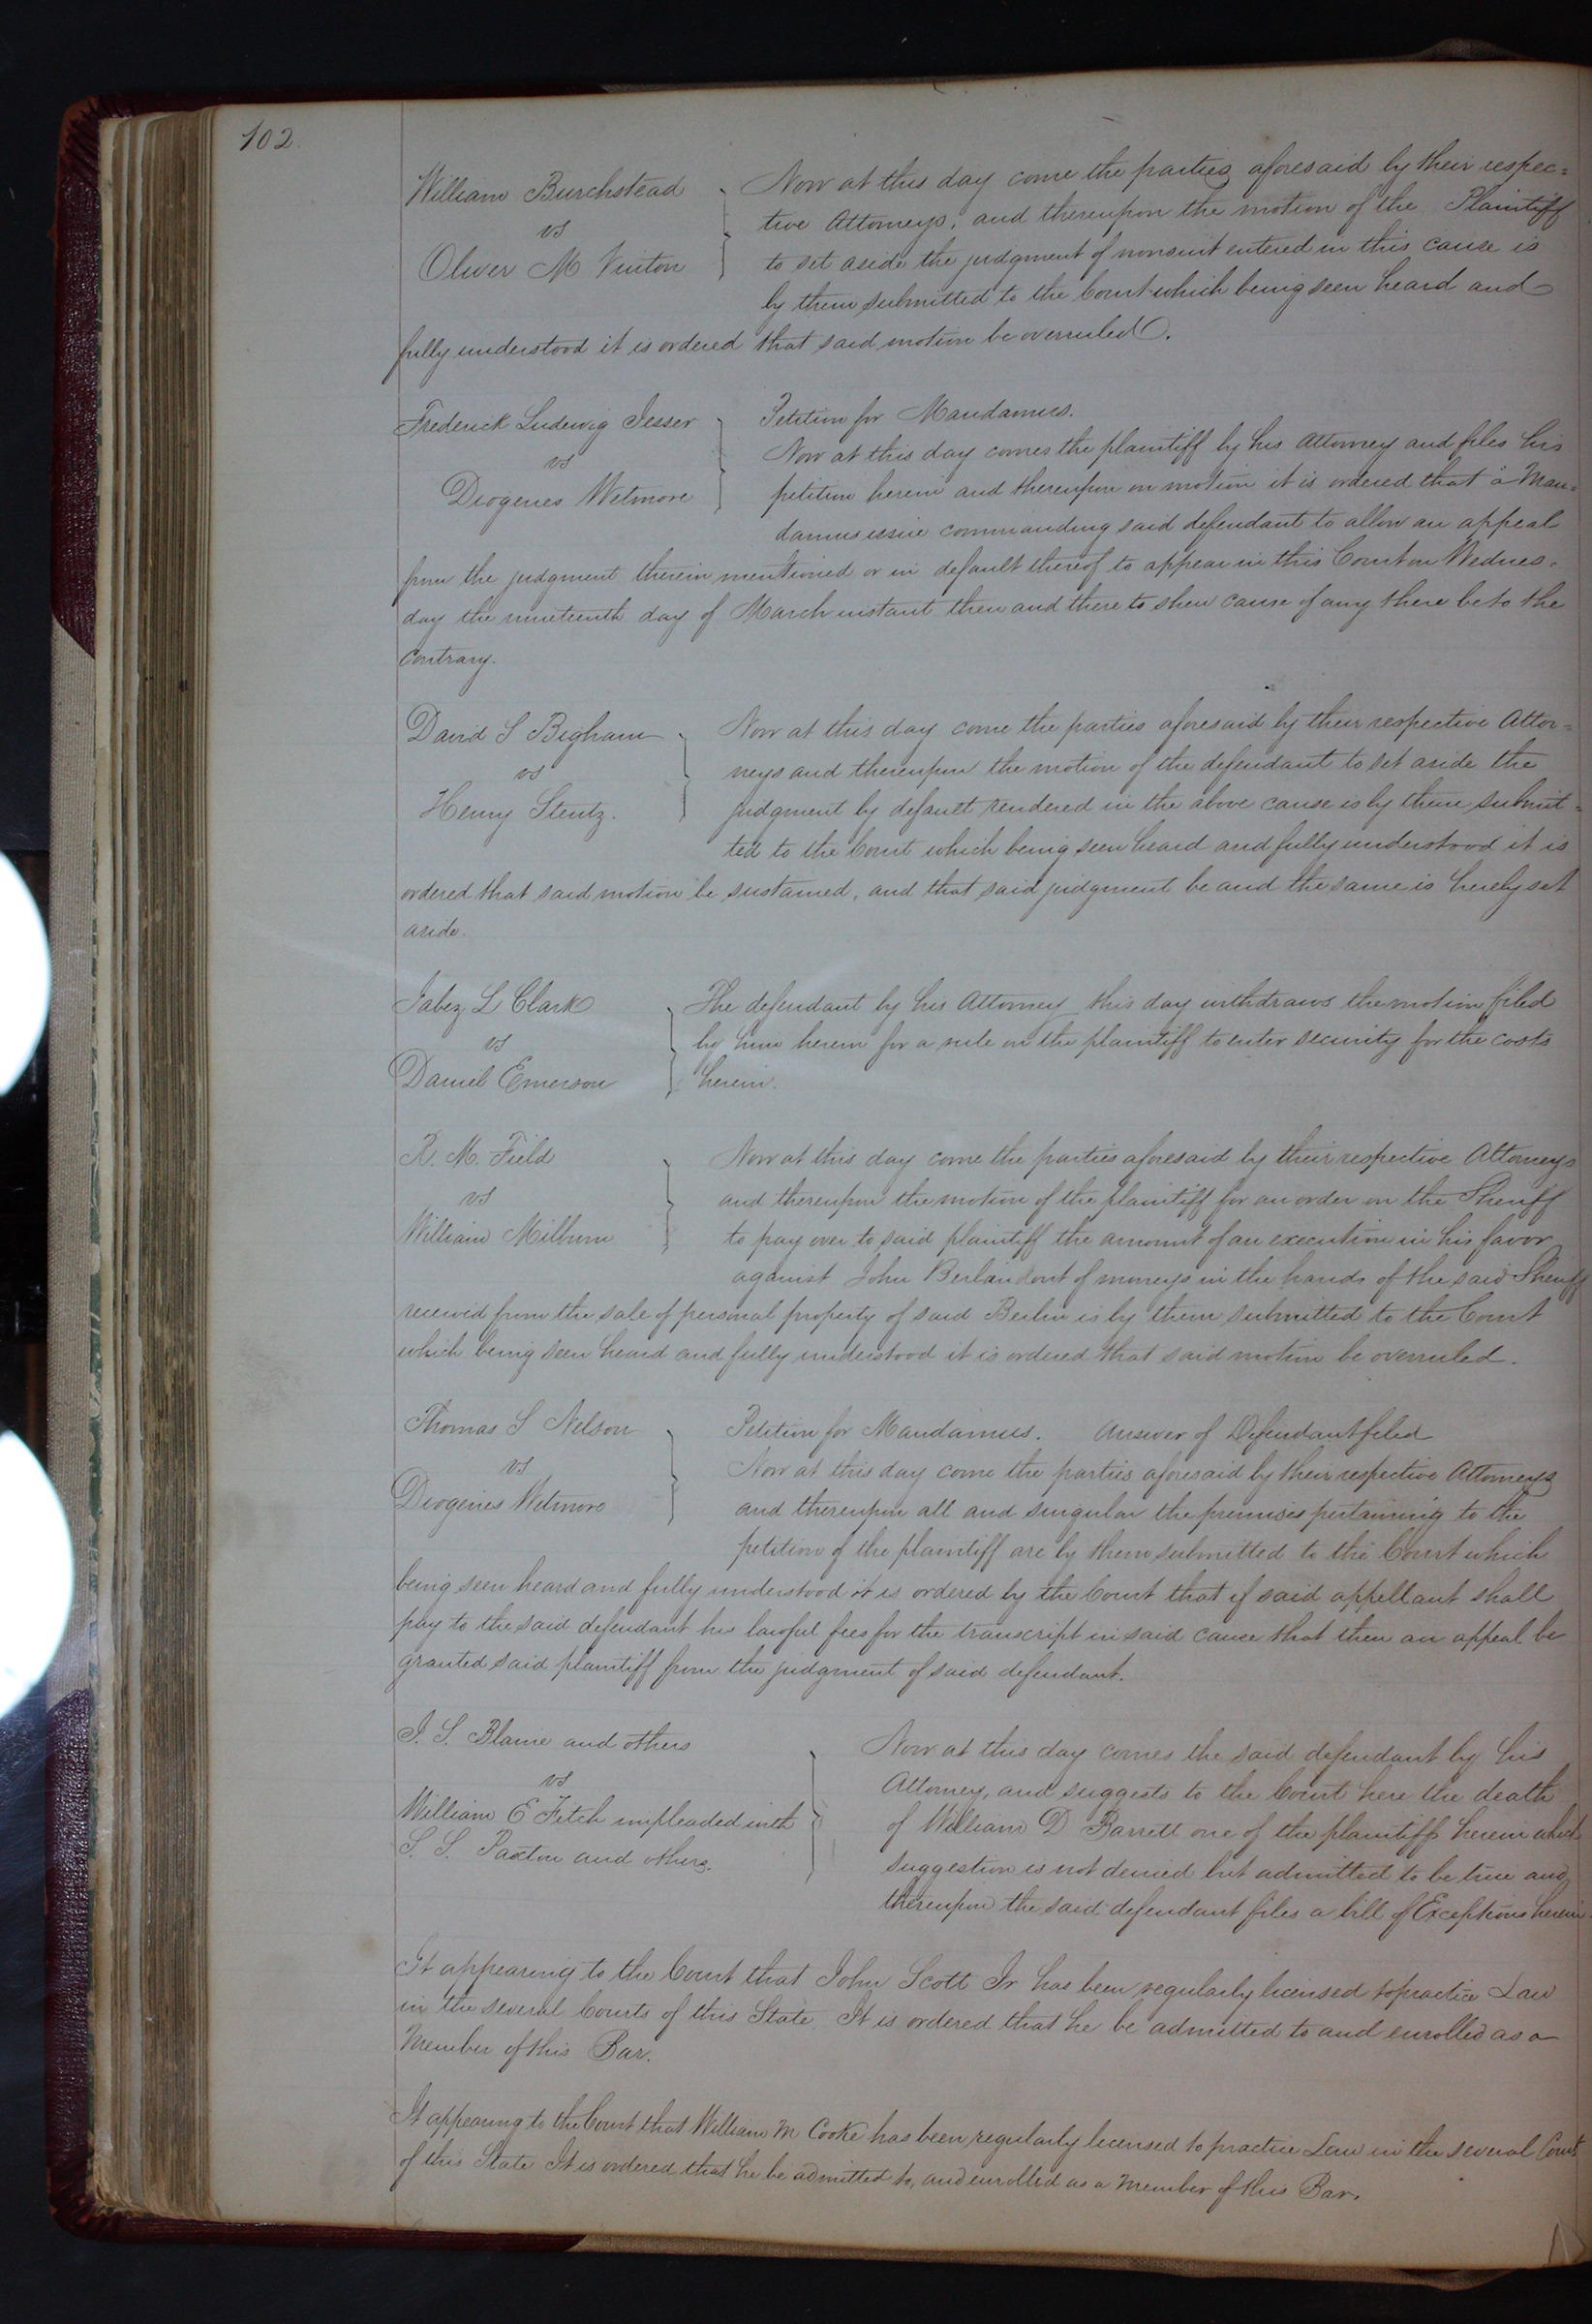 102.
William Burchstead
vs
Oliver M Vinton
Now at this day come the parties aforesaid by their respec=
tive Attorneys, and thereupon the motion of the Plaintiff
to set aside the judgment of nonsuit entered in this cause is
by them submitted to the Court which being seen heard and
fully understood it is ordered that said motion be overruled.
Frederick Ludewig Jesser
vs
Diogenes Wetmore
Petition for Mandamus.
Now at this day comes the plaintiff by his Attorney and files his
petition herein and thereupon on motion it is ordered that a Man=
damus issue commanding said defendant to allow an appeal
from the judgment therein mentioned or in default thereof to appear in this Court on Wednes=
day the nineteenth day of March instant then and there to shew cause if any there be to the
contrary.
David S Bigham
vs
Henry Stentz.
Now at this day come the parties aforesaid by their respective Attor=
neys and thereupon the motion of the defendant to set aside the
judgment by default rendered in the above cause is by them submit=
ted to the Court which being seen heard and fully understood it is
ordered that said motion be sustained, and that said judgment be and the same is hereby set
aside.
Jabez L Clark
vs
Daniel Emerson
The defendant by his Attorney this day withdraws the motion filed
by him herein for a rule on the plaintiff to enter security for the costs
herein.
R. M. Field
vs
William Milburn
Now at this day come the parties aforesaid by their respective Attorneys
and thereupon the motion of the plaintiff for an order on the Sheriff
to pay over to said plaintiff the amount of an execution in his favor
against John out of moneys in the hands of the said Sheriff
received from the sale of personal property of said Berlin is by them submitted to the Court
which being seen heard and fully understood it is ordered that said motion be overruled.
Thomas S Nelson
vs
Diogenes Wetmore
Petition for Mandamus. Answer of Defendant filed
Now at this day come the parties aforesaid by their respective Attorneys
and thereupon all and singular the premises pertaining to the
petition of the plaintiff are by them submitted to the Court which
being seen heard and fully understood it is ordered by the Court that if said appellant shall
pay to the said defendant his lawful fees for the transcript in said cause that then an appeal be
granted said plaintiff from the judgment of said defendant.
J. S. Blaine and others
vs
William E Fitch impleaded with
S. S. Paxton and others.
Now at this day comes the said defendant by his
Attorney, and suggests to the Court here the death
of William D Barrett one of the plaintiffs herein which
suggestion is not denied but admitted to be true and
thereupon the said defendant files a bill of Exceptions herein.
It appearing to the Court that John Scott Jr has been regularly licensed to practice Law
in the several Courts of this State. It is ordered that he be admitted to and enrolled as a
Member of this Bar.
It appearing to the Court that William M Cooke has been regularly licensed to practice Law in the several Courts
of this State It is ordered that he be admitted to, and enrolled as a Member of this Bar.